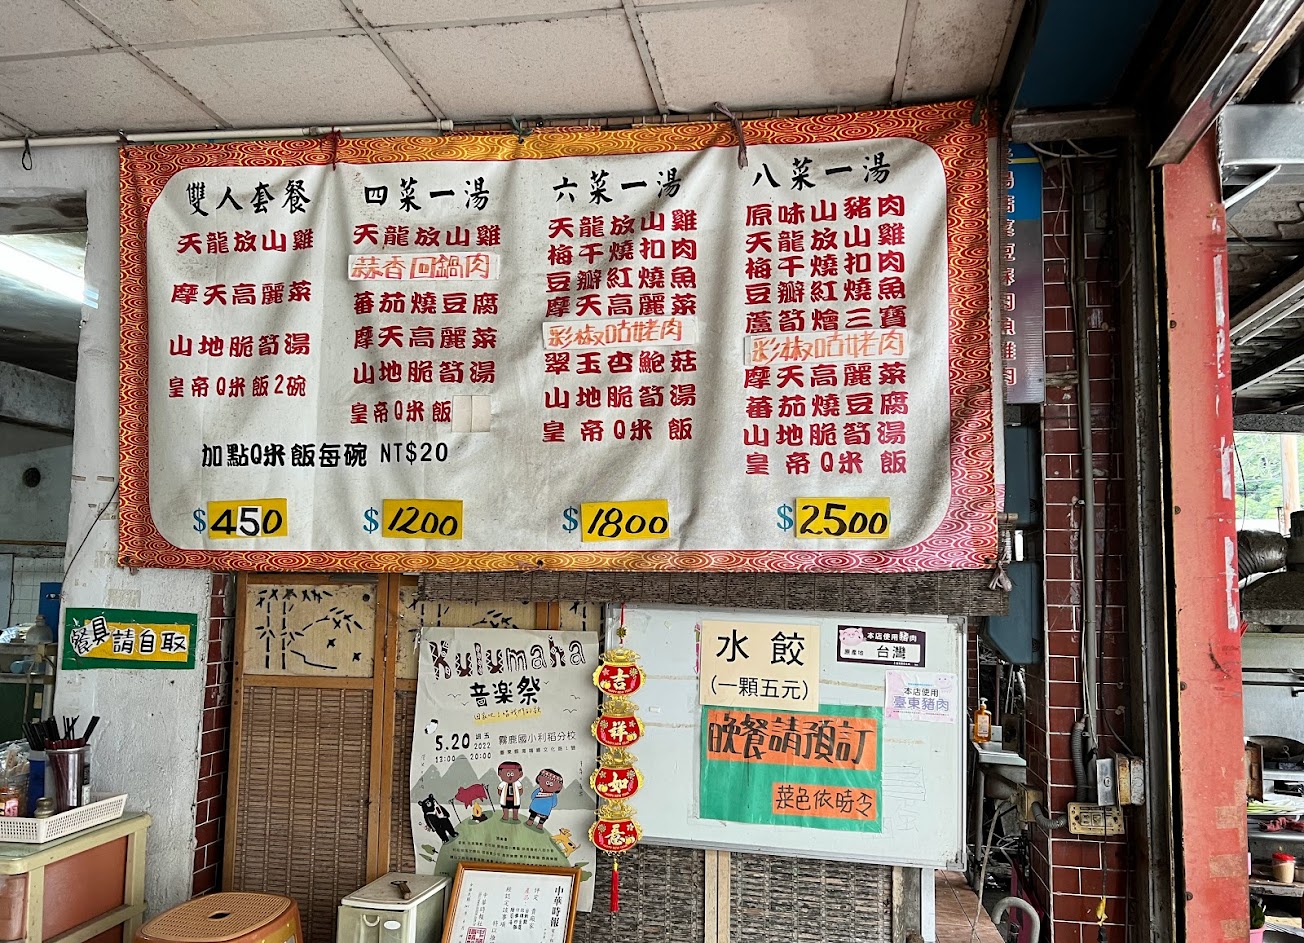 雙人套餐
天龍放山雞
摩天高麗菜
山地脆筍湯
皇帝Q米飯2碗
四菜一湯
天龍放山雞
蒜香回鍋肉
蕃茄燒豆腐
摩天高麗菜
山地脆筍湯
皇帝Q米飯
加點Q米飯每碗 NT$20
六菜一湯
天龍放山雞
梅干燒扣肉
豆瓣紅燒魚
摩天高麗菜
彩椒咕姥肉
翠玉杏鮑菇
山地脆筍湯
皇帝Q米飯
八菜一湯
原味山豬肉
天龍放山雞
梅干燒扣肉
豆瓣紅燒魚
蘆筍燴三寶
彩椒咕姥肉
摩天高麗菜
蕃茄燒豆腐
山地脆筍湯
皇帝Q米飯
$450
$1200
$1800
$2500
餐具請自取
Kulumaha
音樂祭
5.20 週五
2022
13:00
20:00
霧鹿國小利稻分校
吉
祥
如
意
水餃
(一顆五元)
晚餐請預訂
菜色依時令
本店使用豬肉
原產地 台灣
本店使用
臺東豬肉
中華時報